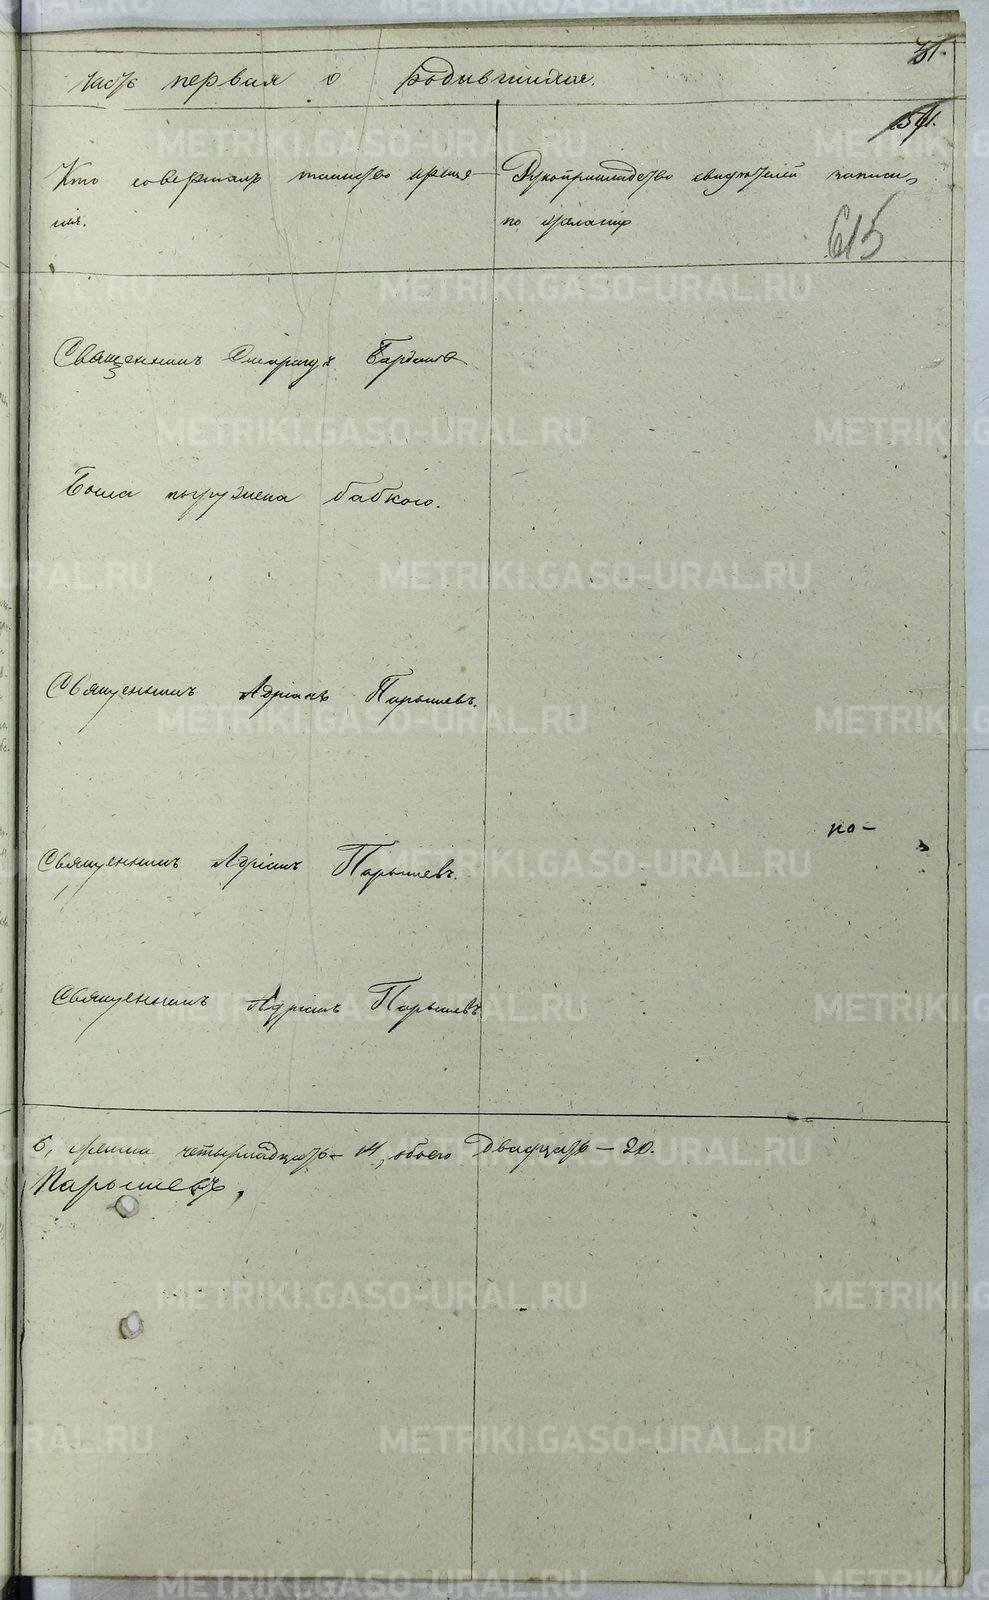 31.
Часть первая о родившихся.
591.
Кто совершалъ таинство креще-
нія.
Рукоприкладство свидѣтелей записи
по желанію
615
Священникъ
Была погружена бабкою.
Священникъ Адріанъ Парышевъ.
по-
Священникъ Адріанъ Парышевъ.
Священникъ Адріанъ Парышевъ
6, женска четырнадцать – 14, обоего двадцать – 20.
Парышевъ,
METRIKI.GASO-URAL.RU